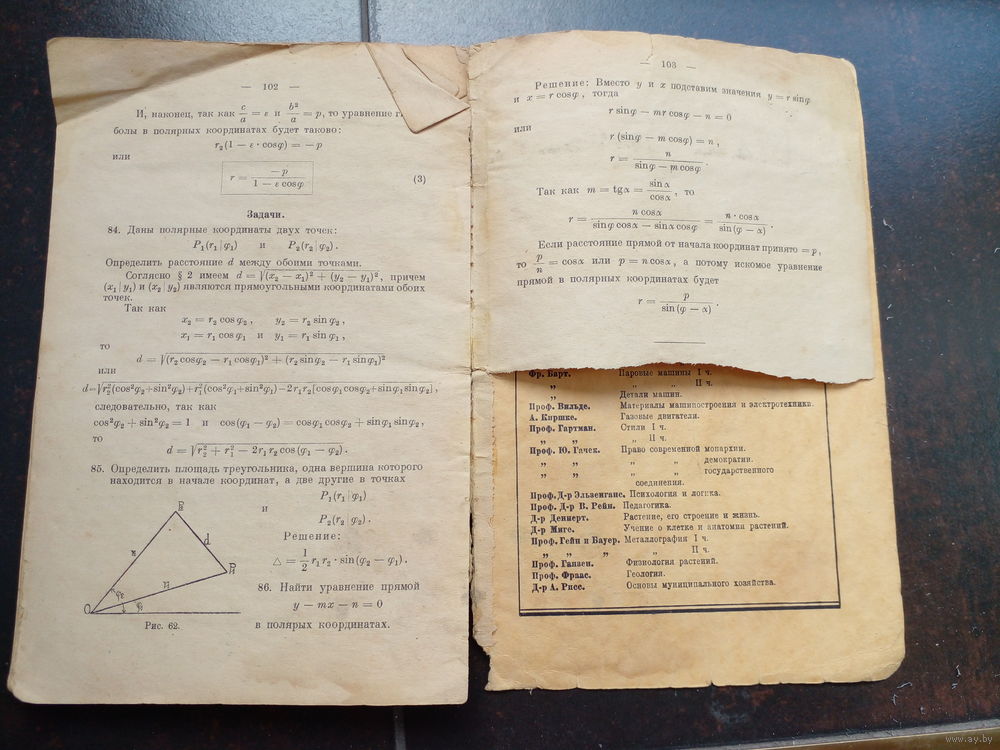 — 102 —
И, наконец, так как c/a = ε и b²/a = p, то уравнение
болы в полярных координатах будет таково:
r₂(1 − ε · cosφ) = −p
или
r = −p / (1 − ε cosφ) (3)
Задачи.
84. Даны полярные координаты двух точек:
P₁(r₁|φ₁) и P₂(r₂|φ₂).
Определить расстояние d между обоими точками.
Согласно § 2 имеем d = √(x₂ − x₁)² + (y₂ − y₁)², причем
(x₁|y₁) и (x₂|y₂) являются прямоугольными координатами обоих
точек.
Так как
x₂ = r₂ cosφ₂, y₂ = r₂ sinφ₂,
x₁ = r₁ cosφ₁ и y₁ = r₁ sinφ₁,
то
d = √(r₂ cosφ₂ − r₁ cosφ₁)² + (r₂ sinφ₂ − r₁ sinφ₁)²
или
d=√r₂²(cos²φ₂+sin²φ₂)+r₁²(cos²φ₁+sin²φ₁)−2r₁r₂[cosφ₁cosφ₂+sinφ₁sinφ₂],
следовательно, так как
cos²φ₂ + sin²φ₂ = 1 и cos(φ₁ − φ₂) = cosφ₁cosφ₂ + sinφ₁sinφ₂,
то
d = √r₂² + r₁² − 2r₁r₂ cos(φ₁ − φ₂).
85. Определить площадь треугольника, одна вершина которого
находится в начале координат, а две другие в точках
P₁(r₁|φ₁)
и
P₂(r₂|φ₂).
Решение:
△ = 1/2 r₁r₂ · sin(φ₂ − φ₁).
86. Найти уравнение прямой
y − mx − n = 0
в полярых координатах.
d
O
φ₂
φ₁
Рис. 62.
— 103 —
Решение: Вместо y и x подставим значения y = r sinφ
и x = r cosφ, тогда
r sinφ − mr cosφ − n = 0
или
r (sinφ − m cosφ) = n,
r = n / (sinφ − m cosφ).
Так как m = tgα = sinα / cosα, то
r = n cosα / (sinφ cosα − sinα cosφ) = n · cosα / sin(φ − α).
Если расстояние прямой от начала координат принято = p,
то p/n = cosα или p = n cosα, а потому искомое уравнение
прямой в полярных координатах будет
r = p / sin(φ − α)
Фр. Барт. Паровые машины I ч.
„ „ „ II ч.
„ Детали машин.
Проф. Вильде. Материалы машиностроения и электротехники.
А. Киршке. Газовые двигатели.
Проф. Гартман. Стили I ч.
„ „ „ II ч.
Проф. Ю. Гачек. Право современной монархии.
„ „ „ „ демократии.
„ „ „ „ государственного
соединения.
Проф. Д-р Эльзенганс. Психология и логика.
Проф. Д-р В. Рейн. Педагогика.
Д-р Деннерт. Растение, его строение и жизнь.
Д-р Миге. Учение о клетке и анатомия растений.
Проф. Гейн и Бауер. Металлография I ч.
„ „ „ „ II ч.
Проф. Ганзен. Физиология растений.
Проф. Фраас. Геология.
Д-р А. Рисс. Основы муниципального хозяйства.
www.ay.by